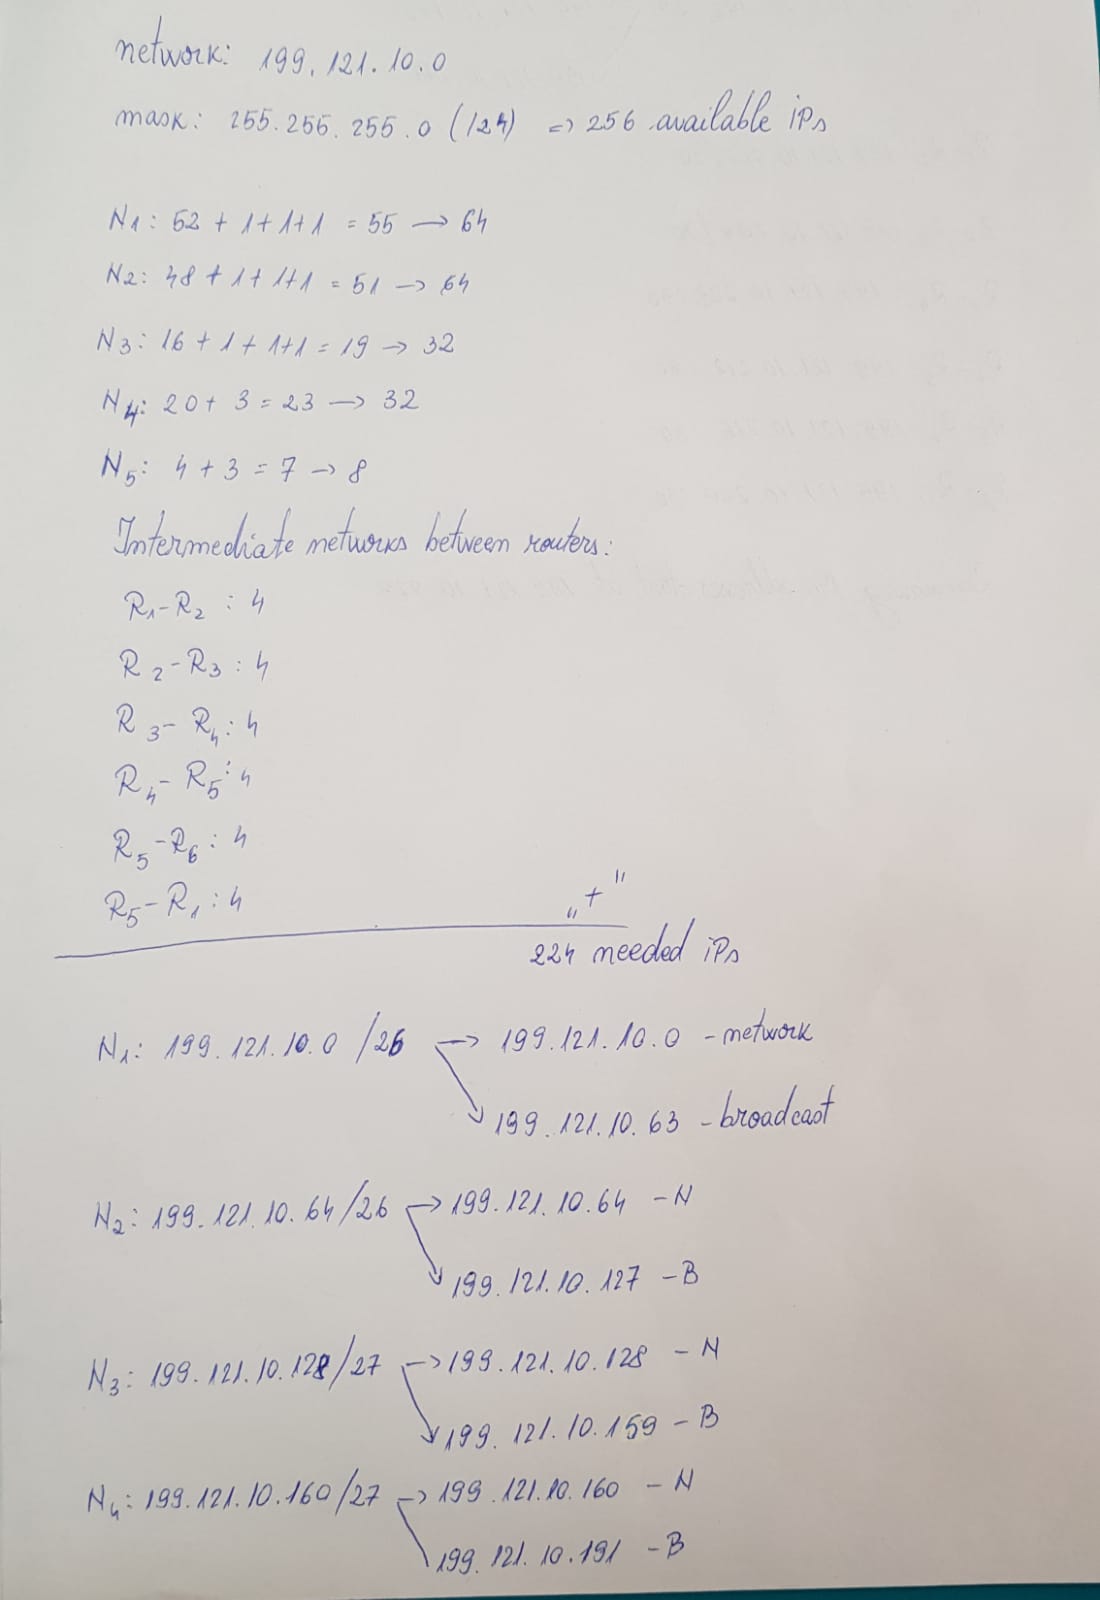 network: 199.121.10.0
mask: 255.255.255.0 (/24) => 256 available iPs
N1: 52 + 1+1+1 = 55 → 64
N2: 48 + 1+1+1 = 51 → 64
N3: 16 + 1+1+1 = 19 → 32
N4: 20 + 3 = 23 → 32
N5: 4 + 3 = 7 → 8
Intermediate networks between routers:
R1-R2 : 4
R2-R3 : 4
R3-R4 : 4
R4-R5 : 4
R5-R6 : 4
R5-R1 : 4
„+"
224 needed iPs
N1: 199.121.10.0 /26 → 199.121.10.0 - network
199.121.10.63 - broadcast
N2: 199.121.10.64/26 → 199.121.10.64 - N
199.121.10.127 - B
N3: 199.121.10.128/27 → 199.121.10.128 - N
199.121.10.159 - B
N4: 199.121.10.160/27 → 199.121.10.160 - N
199.121.10.191 - B